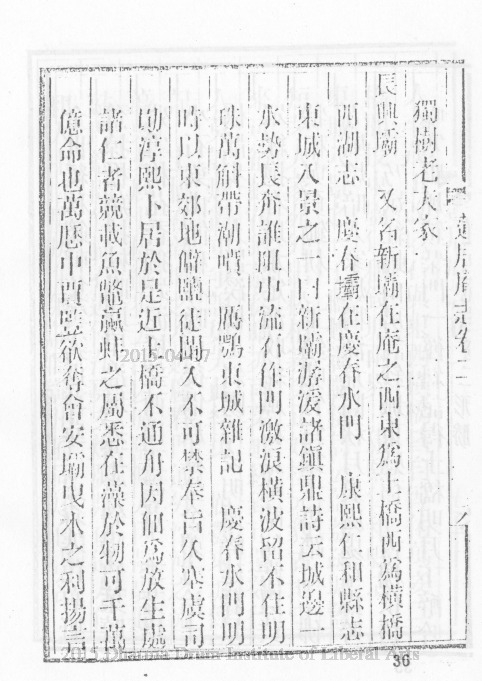 獨樹老大家
長興壩 又名新壩在庵之西東爲土橋西爲橫橋
西湖志 慶春壩在慶春水門 康熙仁和縣志
東城八景之一曰新壩潺湲諸鎮鼎詩云城邊一
水勢長奔誰阻中流石作門激浪橫波留不住明
珠萬斛帶潮噴 厲鶚東城雜記 慶春水門明
時以東郊地僻鹽徒闌入不可禁奉旨久塞虞司
勛淳熙卜居於是近土橋不通舟因佃爲放生處
諸仁者競載魚鼈蠃蚌之屬悉在藻於牣可千萬
億命也萬曆中賈豎欲奪會安壩曳木之利揚言
庵志卷二 形勝
36
2015-04-07
2015 Dharma Drum Institute of Liberal Arts